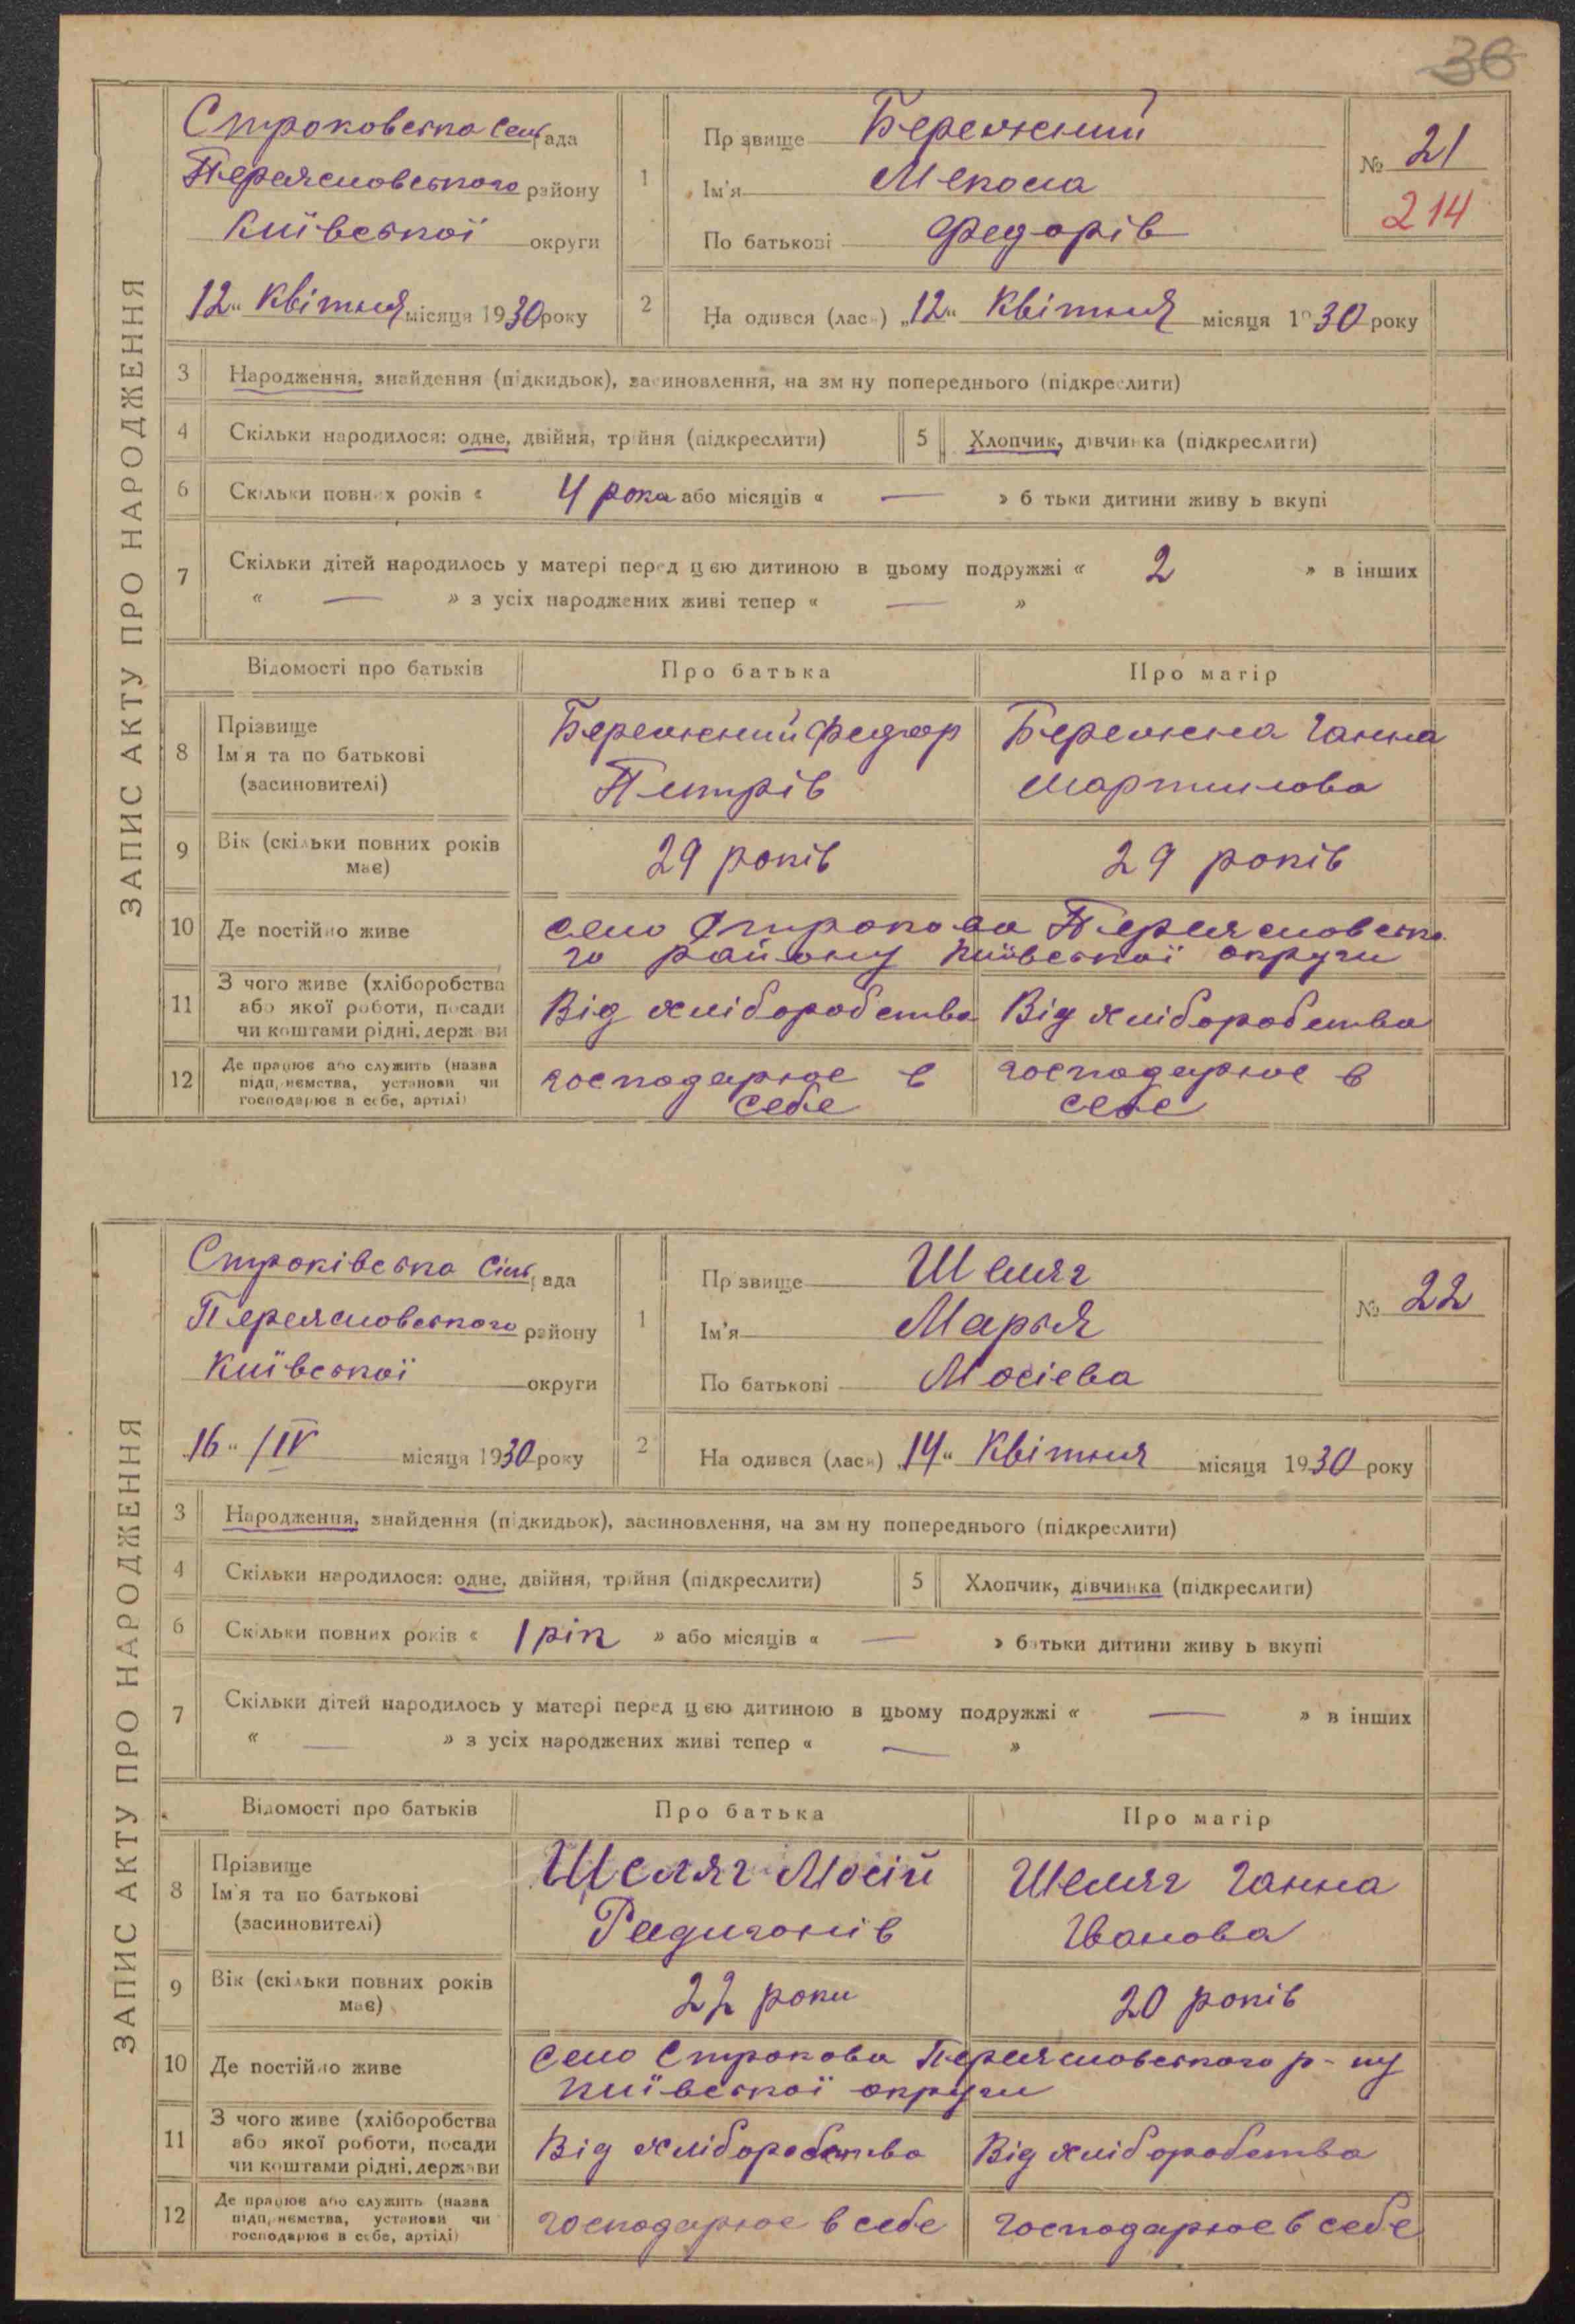 36
ЗАПИС АКТУ ПРО НАРОДЖЕННЯ
Строковська сельрада
Переясловського району
Київської округи
12 " Квітня місяця 1930 року
1 Прізвище Бережний
Ім'я Микола
По батькові Федорів
№ 21
214
2 Народився (лась) „12" Квітня місяця 1930 року
3 Народження, знайдення (підкидьок), засиновлення, на зміну попереднього (підкреслити)
4 Скільки народилося: одне, двійня, трійня (підкреслити)
5 Хлопчик, дівчинка (підкреслити)
6 Скільки повних років « 4 рока або місяців « — » батьки дитини живуть вкупі
7 Скільки дітей народилось у матері перед цією дитиною в цьому подружжі « 2 » в інших
« — » з усіх народжених живі тепер « — »
Відомості про батьків Про батька Про матір
8 Прізвище
Ім'я та по батькові
(засиновителі)
Бережний Федор
Петрів
Бережна Ганна
Мартинова
9 Вік (скільки повних років
має)
29 років
29 років
10 Де постійно живе
село Строкова Переясловсько
го району Київської округи
11 З чого живе (хліборобства
або якої роботи, посади
чи коштами рідні, держави
Від хліборобства
Від хліборобства
12 Де працює або служить (назва
підприємства, установи чи
господарює в себе, артілі)
господарює в
себе
господарює в
себе
ЗАПИС АКТУ ПРО НАРОДЖЕННЯ
Строківська сільрада
Переясловського району
Київської округи
„16" /IV місяця 1930 року
1 Прізвище Шеляг
Ім'я Марья
По батькові Мосієва
№ 22
2 Народився (лась) „14" Квітня місяця 1930 року
3 Народження, знайдення (підкидьок), засиновлення, на зміну попереднього (підкреслити)
4 Скільки народилося: одне, двійня, трійня (підкреслити)
5 Хлопчик, дівчинка (підкреслити)
6 Скільки повних років « 1 рік » або місяців « — » батьки дитини живуть вкупі
7 Скільки дітей народилось у матері перед цією дитиною в цьому подружжі « — » в інших
« — » з усіх народжених живі тепер « — »
Відомості про батьків Про батька Про матір
8 Прізвище
Ім'я та по батькові
(засиновителі)
Шеляг Мосій
Радигонів
Шеляг Ганна
Іванова
9 Вік (скільки повних років
має)
22 роки
20 років
10 Де постійно живе
село Строкова Переясловського р-ну
Київської округи
11 З чого живе (хліборобства
або якої роботи, посади
чи коштами рідні, держави
Від хліборобства
Від хліборобства
12 Де працює або служить (назва
підприємства, установи чи
господарює в себе, артілі)
господарює в себе
господарює в себе